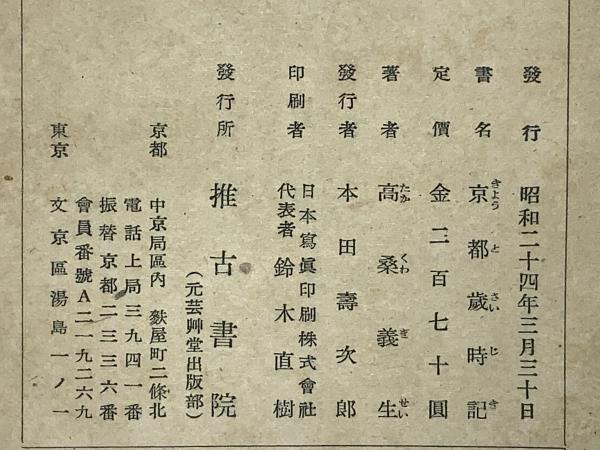 發行 昭和二十四年三月三十日
書名 京都歲時記
きようとさいじき
定價 金二百七十圓
著者 高桑義生
たかくわぎせい
發行者 本田壽次郎
印刷者 日本寫眞印刷株式會社
代表者 鈴木直樹
發行所 推古書院
(元芸艸堂出版部)
京都 中京局區內 麩屋町二條北
電話上局三九四一番
振替京都二三三六番
會員番號A二一九二六九
東京 文京區湯島一ノ一